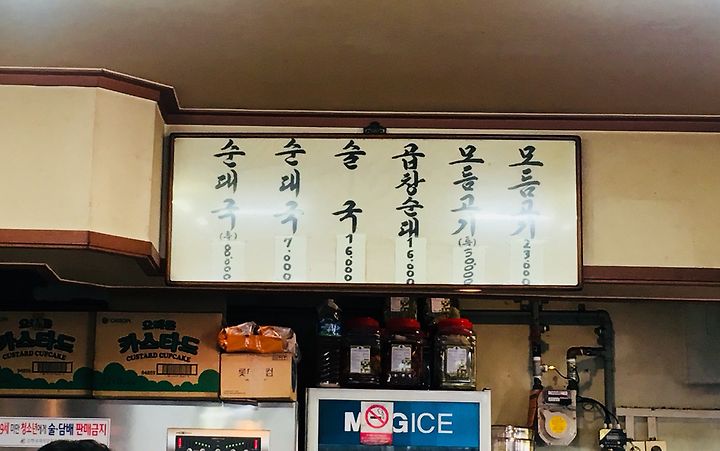 순대국(특) 8,000
순대국 7,000
술국 16,000
곱창순대 16,000
모듬고기(특) 30,000
모듬고기 23,000
카스타드
CUSTARD CUPCAKE
ORION
오리온
카스타드
CUSTARD CUPCAKE
MAGICE
19세 미만 청소년에게 술·담배 판매금지